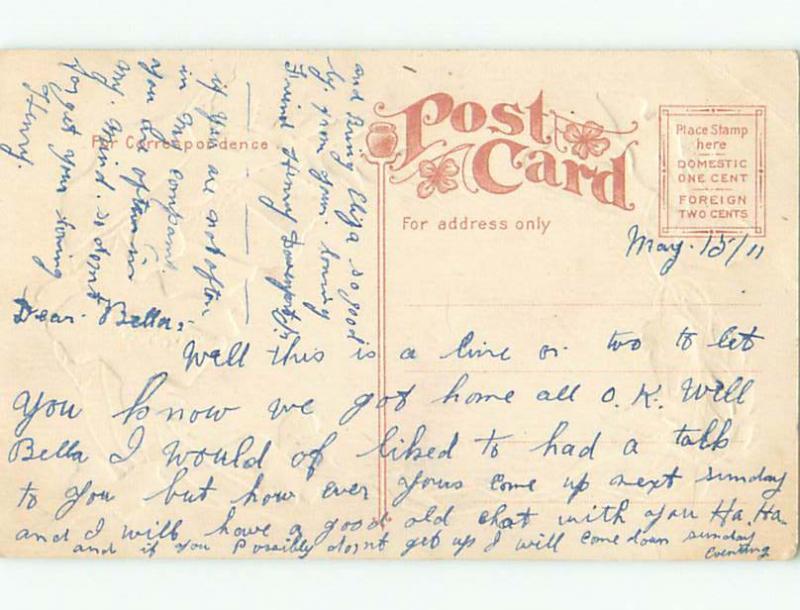 Post
Card
For Correspondence
For address only
Place Stamp
here
DOMESTIC
ONE CENT
FOREIGN
TWO CENTS
May. 15/11
Dear. Bella,
Well this is a line or two to let
you know we got home all O.K. Will
Bella I would of liked to had a talk
to you but how ever yous come up next sunday
and I will have a good old chat with you Ha. Ha.
and if you Possibly don't get up I will come down sunday
evening
and bring Eliza so good
by. from your loving
Friend Henry
if you are not often
in my company.
you are often in
my mind. so dont
forget your loving
Henry.